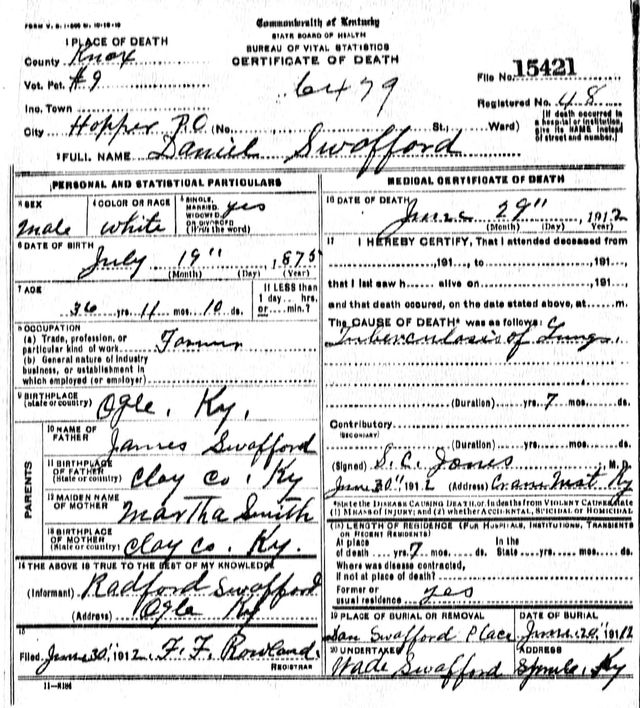 FORM V. S. 1-500 M. 10-10-10
Commonwealth of Kentucky
STATE BOARD OF HEALTH
BUREAU OF VITAL STATISTICS
CERTIFICATE OF DEATH
1 PLACE OF DEATH
County Knox
Vot. Pct. #9
Inc. Town
City Hopper P.O (No. St., Ward)
6479
File No. 15421
Registered No. 48
[If death occurred in a hospital or institution, give its NAME instead of street and number.]
2 FULL NAME Daniel Swafford
PERSONAL AND STATISTICAL PARTICULARS
3 SEX male
4 COLOR OR RACE white
5 SINGLE, MARRIED, WIDOWED OR DIVORCED (Write the word) yes
6 DATE OF BIRTH July 19", 1875
(Month) (Day) (Year)
7 AGE 36 yrs. 11 mos. 10 ds.
If LESS than 1 day hrs. or min.?
8 OCCUPATION
(a) Trade, profession, or particular kind of work Farmer
(b) General nature of industry business, or establishment in which employed (or employer)
9 BIRTHPLACE (State or country) Ogle, Ky.
PARENTS
10 NAME OF FATHER James Swafford
11 BIRTHPLACE OF FATHER (State or country) Clay Co. Ky
12 MAIDEN NAME OF MOTHER Martha Smith
13 BIRTHPLACE OF MOTHER (State or country) Clay Co. Ky.
14 THE ABOVE IS TRUE TO THE BEST OF MY KNOWLEDGE
(Informant) Radford Swafford
(Address) Ogle Ky
15
Filed June 30", 1912. F. F. Rowland. REGISTRAR
11-8184
MEDICAL CERTIFICATE OF DEATH
16 DATE OF DEATH June 29", 1912
(Month) (Day) (Year)
17 I HEREBY CERTIFY, That I attended deceased from
, 191 , to , 191 ,
that I last saw h alive on , 191 ,
and that death occured, on the date stated above, at m.
The CAUSE OF DEATH* was as follows:
Tuberculosis of Lungs.
(Duration) yrs. 7 mos. ds.
Contributory
(SECONDARY)
(Duration) yrs. mos. ds.
(Signed) S. C. Jones, M. D.
June 30", 1912 (Address) Crane Nest Ky
*State the DISEASE CAUSING DEATH, or, in deaths from VIOLENT CAUSES state (1) MEANS OF INJURY; and (2) whether ACCIDENTAL, SUICIDAL or HOMICIDAL
18 LENGTH OF RESIDENCE (FOR HOSPITALS, INSTITUTIONS, TRANSIENTS OR RECENT RESIDENTS)
At place of death yrs. 7 mos. ds. In the State yrs. mos. ds.
Where was disease contracted, if not at place of death?
Former or usual residence yes
19 PLACE OF BURIAL OR REMOVAL Swafford Place
DATE OF BURIAL June 30", 1912
20 UNDERTAKER Wade Swafford
ADDRESS Ky